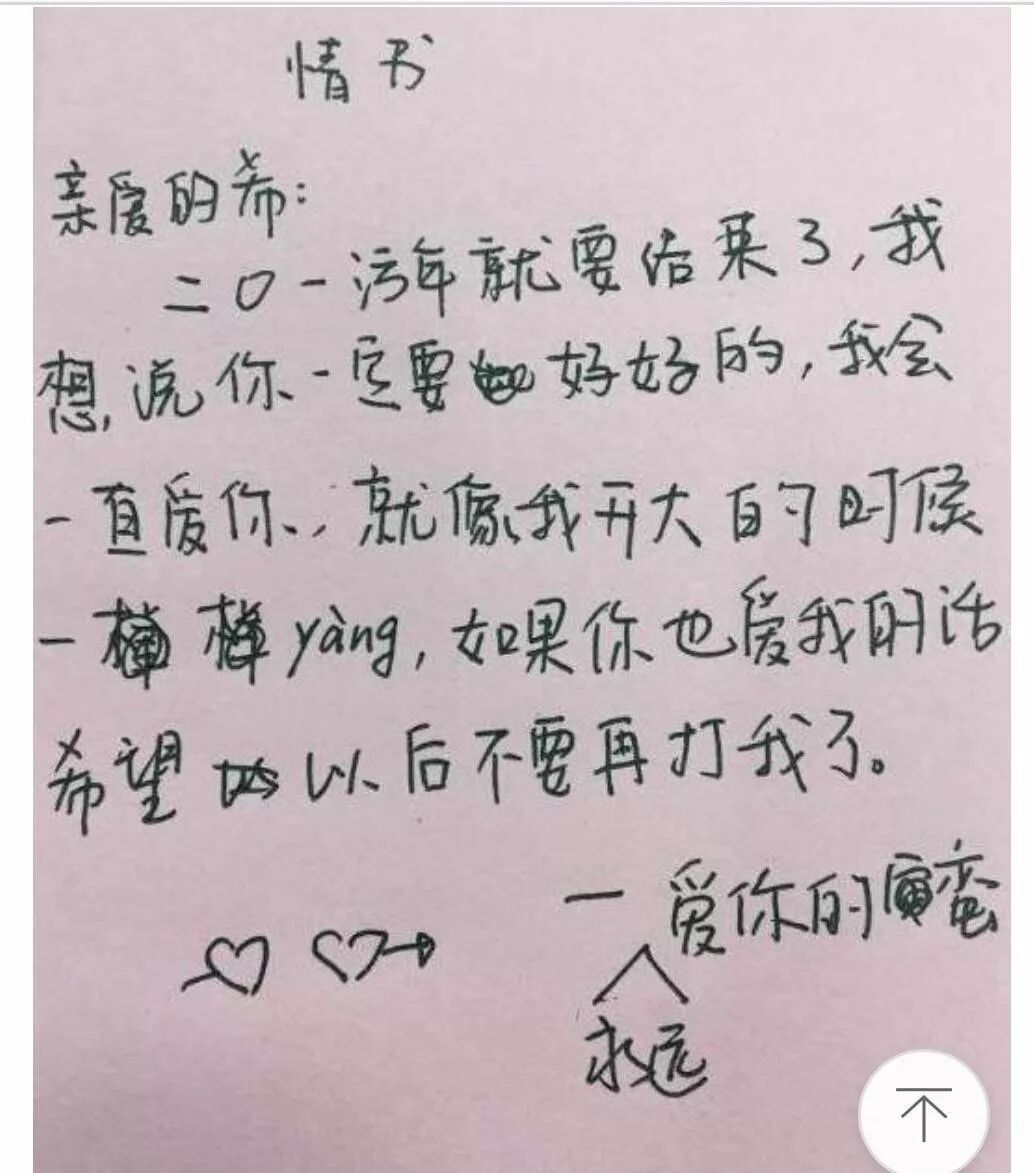 情书
亲爱的希:
二〇一污年就要给来了,我
想,说你一定要好好的,我会
一直爱你,就像我开大的时候
一yàng,如果你也爱我的话
希望以后不要再打我了。
一爱你的
永远